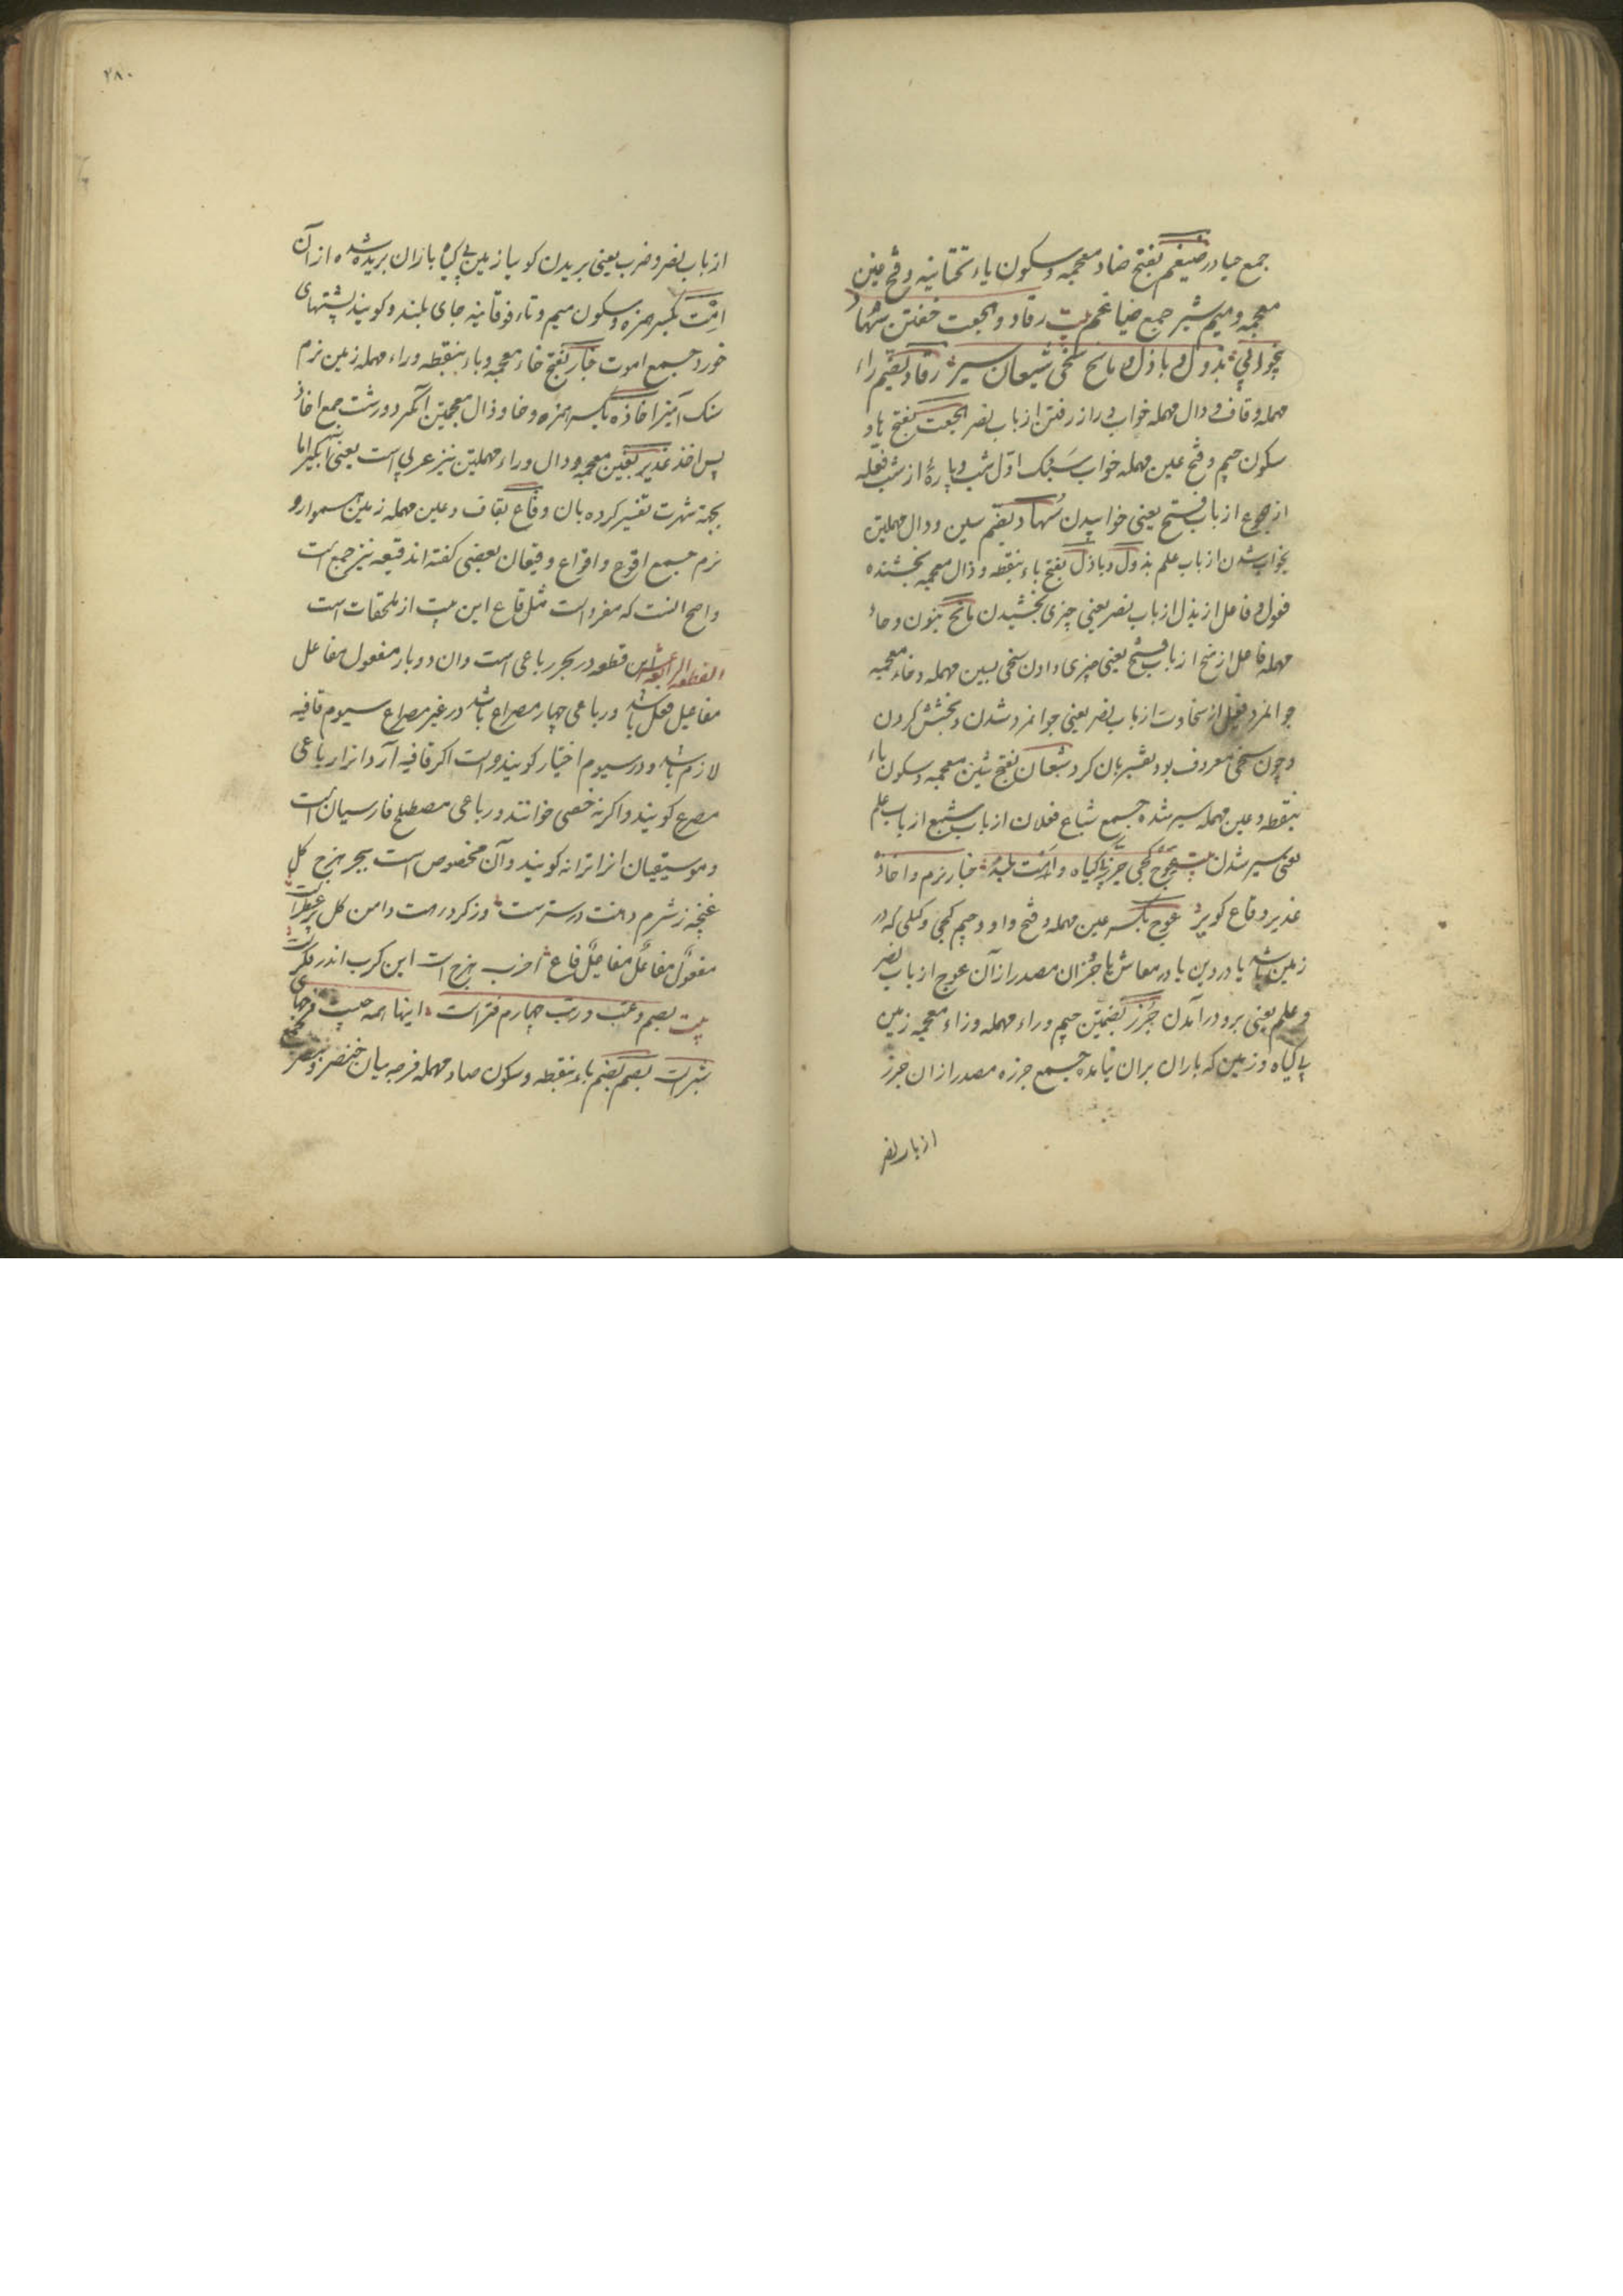 جمع حیادر ضیغم بفتح ضاد معجمه و سکون یاء تحتانیه و فتح غین
معجمه و میم شیر جمع ضیاغم بیت رقاد و هجعت خفتن سهاد
بذول و باذل و مانح سخی شبعان سیر رقاد بضم راء
مهمله و قاف و دال مهمله خواب دراز رفتن از باب نصر هجعت بفتح هاء و
سکون جیم و فتح عین مهمله خواب سبک اول شب و پاره از شب فعله
از هجوع از باب فتح یعنی خوابیدن سهاد بضم سین و دال مهملتین
بخواب شدن از باب علم بذول و باذل بفتح باء بنقطه و ذال معجمه بخشنده
فعول و فاعل از بذل از باب نصر یعنی چیزی بخشیدن مانح بنون و حاء
مهمله فاعل از منح از باب فتح یعنی چیزی دادن سخی بسین مهمله و خاء معجمه
جوانمرد فعیل از سخاوت از باب نصر یعنی جوانمرد شدن و بخشش کردن
و چون سخی معروف بود تفسیر بان کرد شبعان بفتح شین معجمه و سکون باء
بنقطه و عین مهمله سیر شده جمع شباع فعلان از باب شبع از باب علم
یعنی سیر شدن بیت عوج کجی جرز بی‌گیاه و امت بلند خبار نرم و اخاذ
غدیر و قاع کویر عوج بکسر عین مهمله و فتح واو و جیم کجی و کلی که در
زمین باشد یا در دین یا در معاش مصدر از آن عوج از باب نصر
و علم یعنی برو درآمدن جرز بضمتین جیم و راء مهمله و زاء معجمه زمین
بی گیاه و زمین که باران بران نیامده جمع جرزه مصدر از ان جرز
از باب نصر
۲۸۰
از باب نصر و ضرب یعنی بریدن کویا زمین بی گیاه باران بریده شده از آن
امت بکسر همزه و سکون میم و تاء فوقانیه جای بلند و کویند پشتهای
خورد جمع اموت خبار بفتح خاء معجمه و باء بنقطه و راء مهمله زمین نرم
سنک آمیز اخاذه بکسر همزه و خا و ذال معجمتین آبگیر جمع اخاذ
پس اخذ غدیر بغین معجمه و دال و راء مهملتین نیز عربی است یعنی آبگیر اما
بجهة شهرت تفسیر کرده بان و قاع بقاف و عین مهمله زمین هموار و
نرم جمع اقوع و اقواع و قیعان بعضی کفته اند قیعه نیز جمع است
و اصح انست که مفرد است مثل قاع این بیت از ملحقات است
القطعه الرابعه عشر این قطعه در بحر رباعی است و ان دو بار مفعول مفاعل
مفاعیل فعل باشد و رباعی چهار مصراع باشد در غیر مصراع سیوم قافیه
لازم باشد و در سیوم اختیار کویند و راست اکر قافیه آرد انرا رباعی
مصرع کویند و اکر نه خصی خوانند و رباعی مصطلح فارسیان است
و موسیقیان انرا ترانه کویند و آن مخصوص است ببحر هزج کل
غنچه ز شرم دهنت در ستر ست وز کرد رهت دامن کل پر عطر است
مفعول مفاعلن مفاعیل فاع اخرب هزج است این کرب اندر فکر است
بیت بصم و عتب و رتب چهارم فتر است اینها همه چیست فرجهای
شبر است بصم بضم باء بنقطه و سکون صاد مهمله فرجه میان خنصر و بنصر